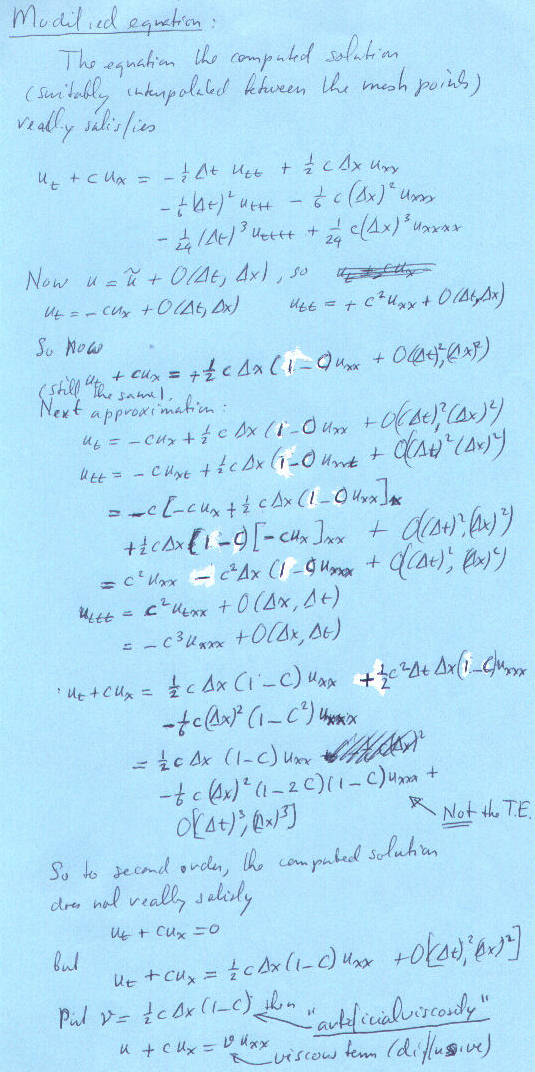 Modified equation:
The equation the computed solution
(suitably interpolated between the mesh points)
really satisfies
u_t + c u_x = - ½ Δt u_tt + ½ c Δx u_xx
- ⅙ (Δt)² u_ttt - ⅙ c (Δx)² u_xxx
- 1/24 (Δt)³ u_tttt + 1/24 c(Δx)³ u_xxxx
Now u = ũ + O(Δt, Δx), so
u_t = - c u_x + O(Δt, Δx) u_tt = + c² u_xx + O(Δt, Δx)
So now
u_t + c u_x = + ½ c Δx (1 - C) u_xx + O((Δt)², (Δx)²)
(still the same).
Next approximation:
u_t = - c u_x + ½ c Δx (1 - C) u_xx + O((Δt)², (Δx)²)
u_tt = - c u_xt + ½ c Δx (1 - C) u_xxt + O((Δt)², (Δx)²)
= - c [- c u_x + ½ c Δx (1 - C) u_xx]_x
+ ½ c Δx (1 - C) [- c u_x]_xx + O((Δt)², (Δx)²)
= c² u_xx - c² Δx (1 - C) u_xxx + O((Δt)², (Δx)²)
u_ttt = c² u_txx + O(Δx, Δt)
= - c³ u_xxx + O(Δx, Δt)
u_t + c u_x = ½ c Δx (1 - C) u_xx + ½ c² Δt Δx (1 - C) u_xxx
- ⅙ c (Δx)² (1 - C²) u_xxx
= ½ c Δx (1 - C) u_xx
- ⅙ c (Δx)² (1 - 2C)(1 - C) u_xxx +
O[(Δt)³, (Δx)³] Not the T.E.
So to second order, the computed solution
does not really satisfy
u_t + c u_x = 0
but
u_t + c u_x = ½ c Δx (1 - C) u_xx + O[(Δt)², (Δx)²]
Put ν = ½ c Δx (1 - C) then "artificial viscosity"
u + c u_x = ν u_xx viscous term (diffusive)